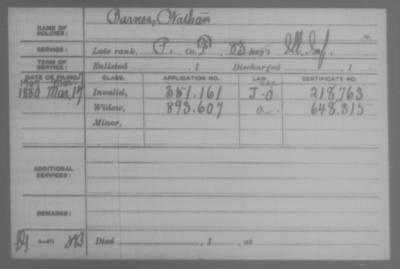 NAME OF SOLDIER: Barnes, Nathan
SERVICE: Late rank, P. Co. F, Reg't Ill. Inf.
TERM OF SERVICE: Enlisted , 1 Discharged , 1
DATE OF FILING. CLASS. APPLICATION NO. LAW. CERTIFICATE NO.
1880 Mar. 17 Invalid, 351.161 218.763
Widow, 893.607 a. 648.315
Minor,
ADDITIONAL SERVICES:
REMARKS:
Died , 1 , at